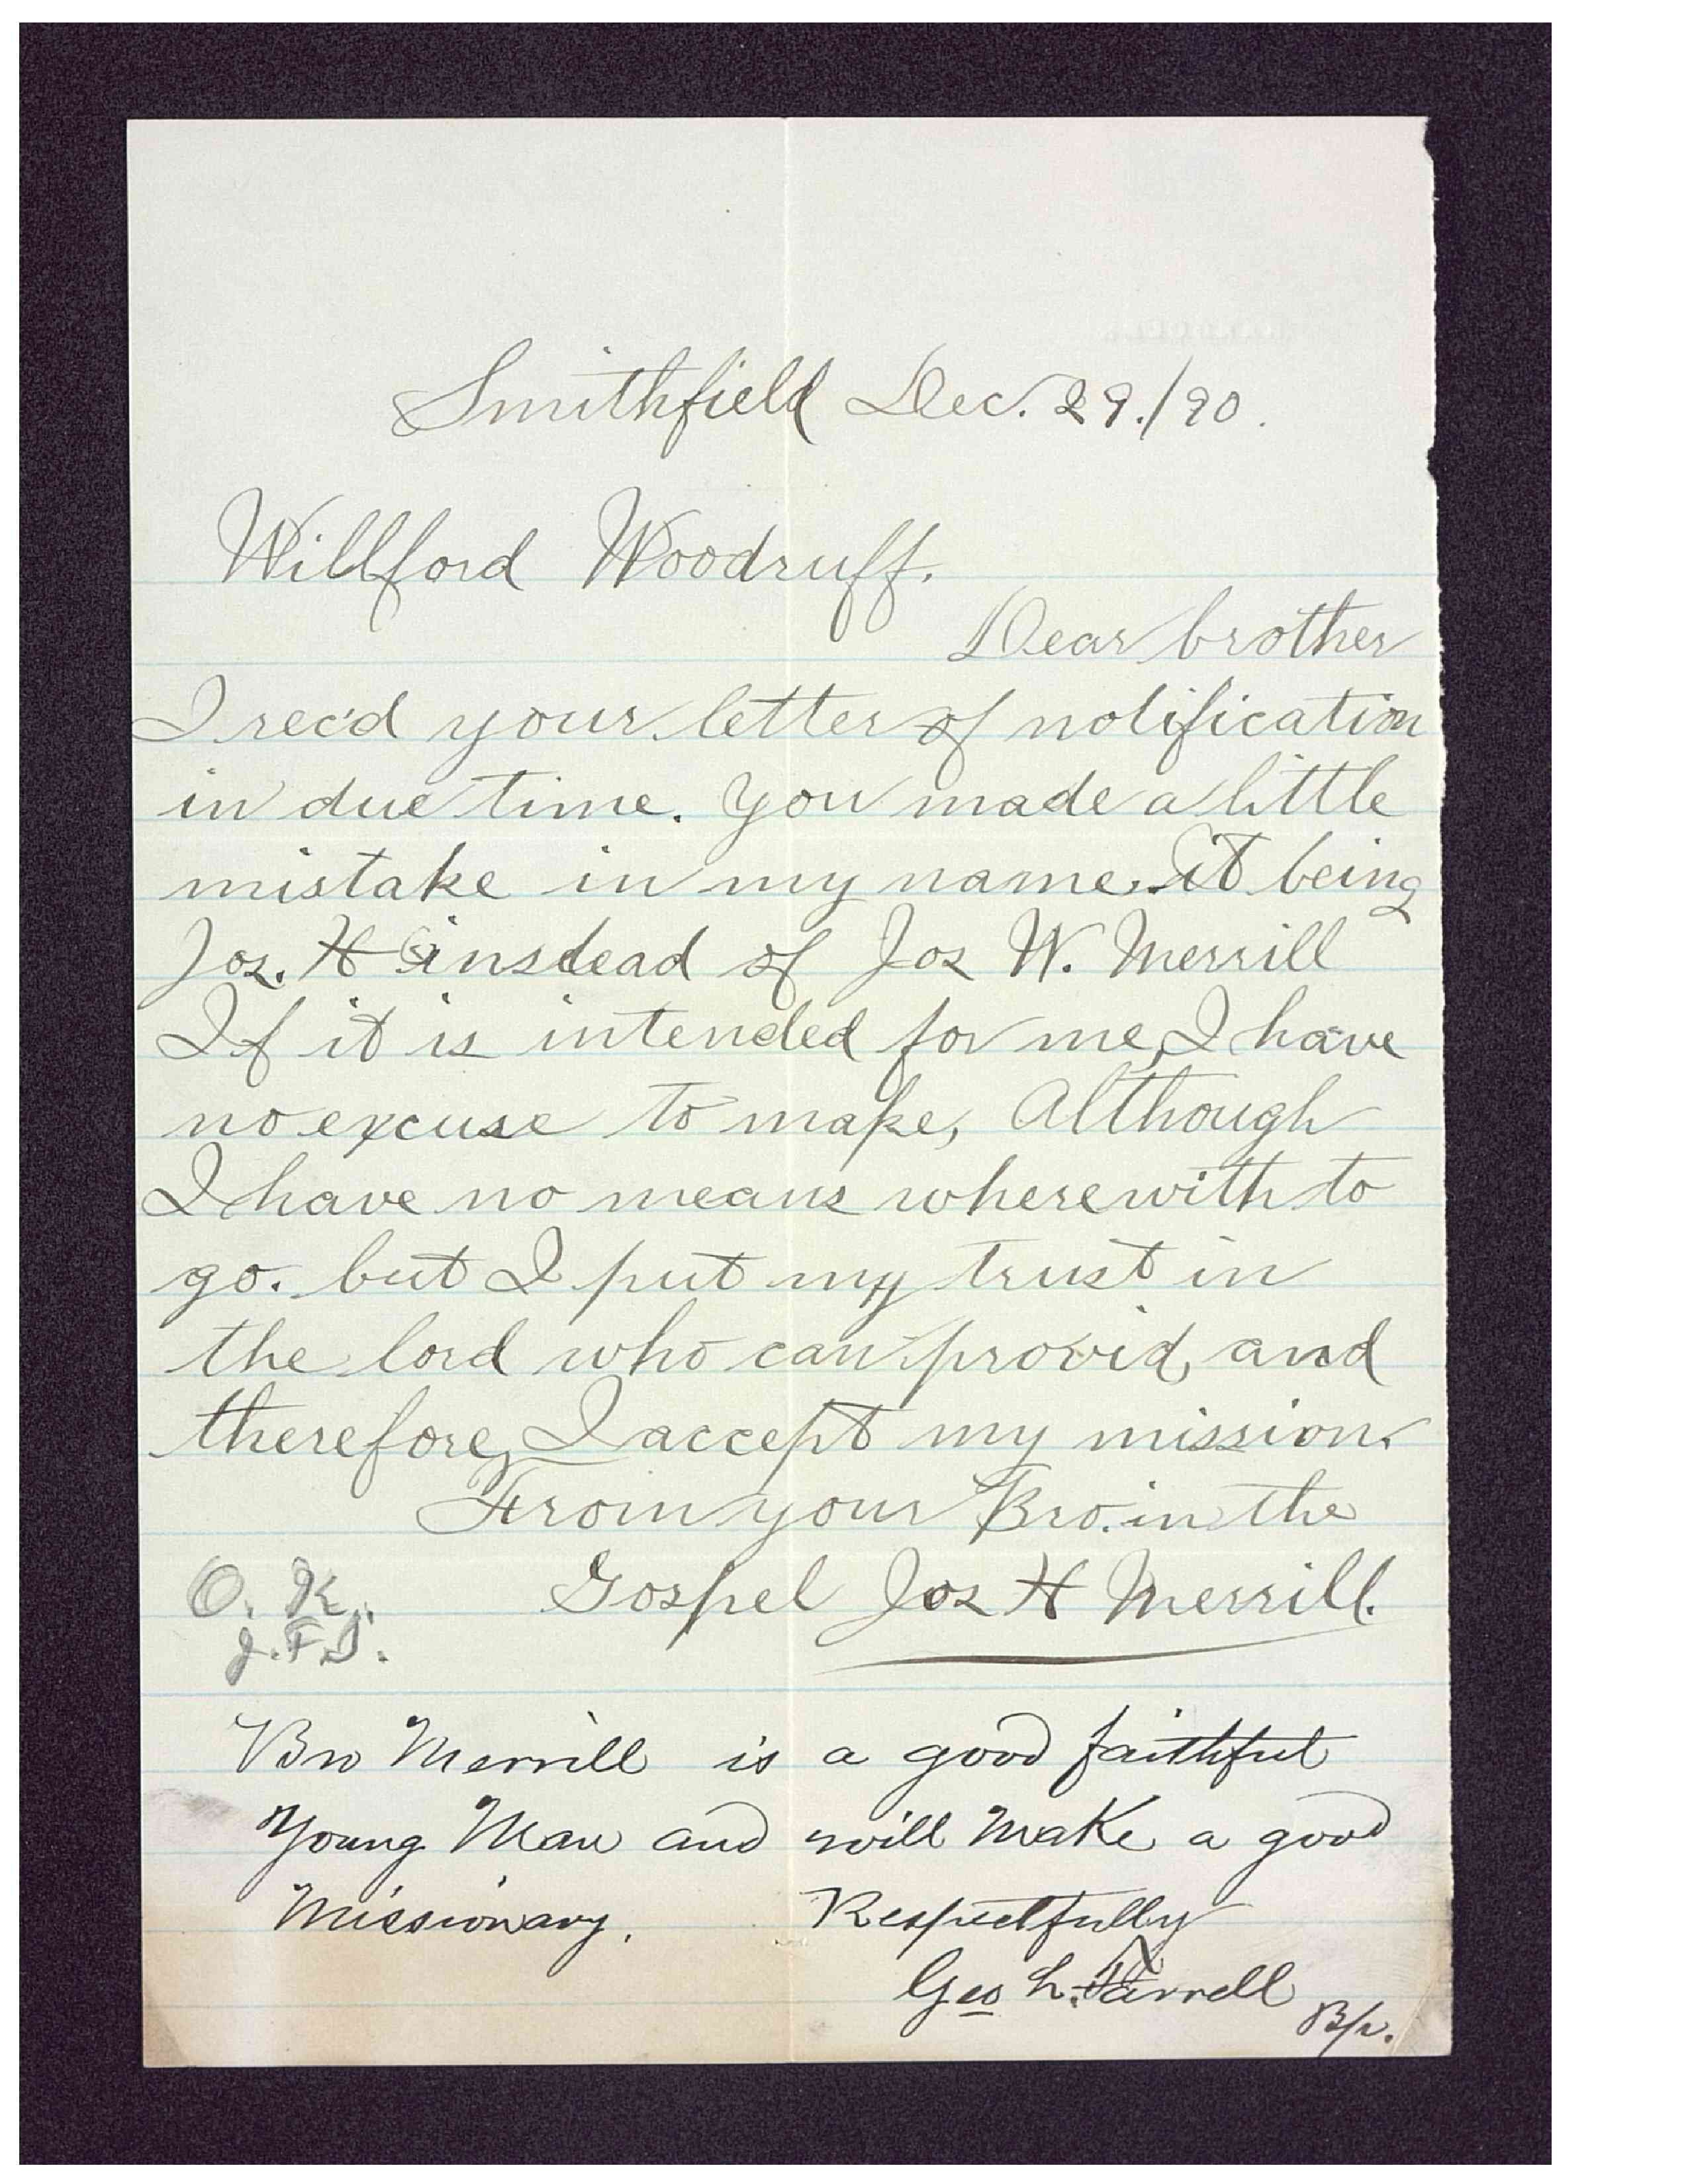 Smithfield Dec. 29./90.
Willford Woodruff.
Dear brother
I rec'd your letter of notification
in due time. You made a little
mistake in my name. it being
Jos. H instead of Jos W. Merrill
If it is intended for me, I have
no excuse to make, Although
I have no means wherewith to
go. but I put my trust in
the lord who can provid, and
therefore, I accept my mission.
From your Bro. in the
Gospel Jos H Merrill.
O. K.
J. F. S.
Bro Merrill is a good faithful
Young Man and will Make a good
Missionary. Respectfully
Geo L. Farrell
Bp.